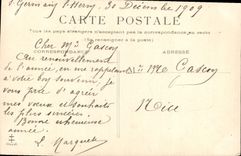 St Germain 30 Décembre 1909
CARTE POSTALE
Tous les pays étrangers n'acceptent pas la correspondance au recto
Cher Mr Gascon
CORRESPONDANCE
ADRESSE
Au renouvellement
de l'année, en me rappelant
à votre bon souvenir je
vous prie d'agréer
mes vœux et souhaits
les plus sincères
Bonne et heureuse
année
L. Marquet
Mr Gascon
Nice